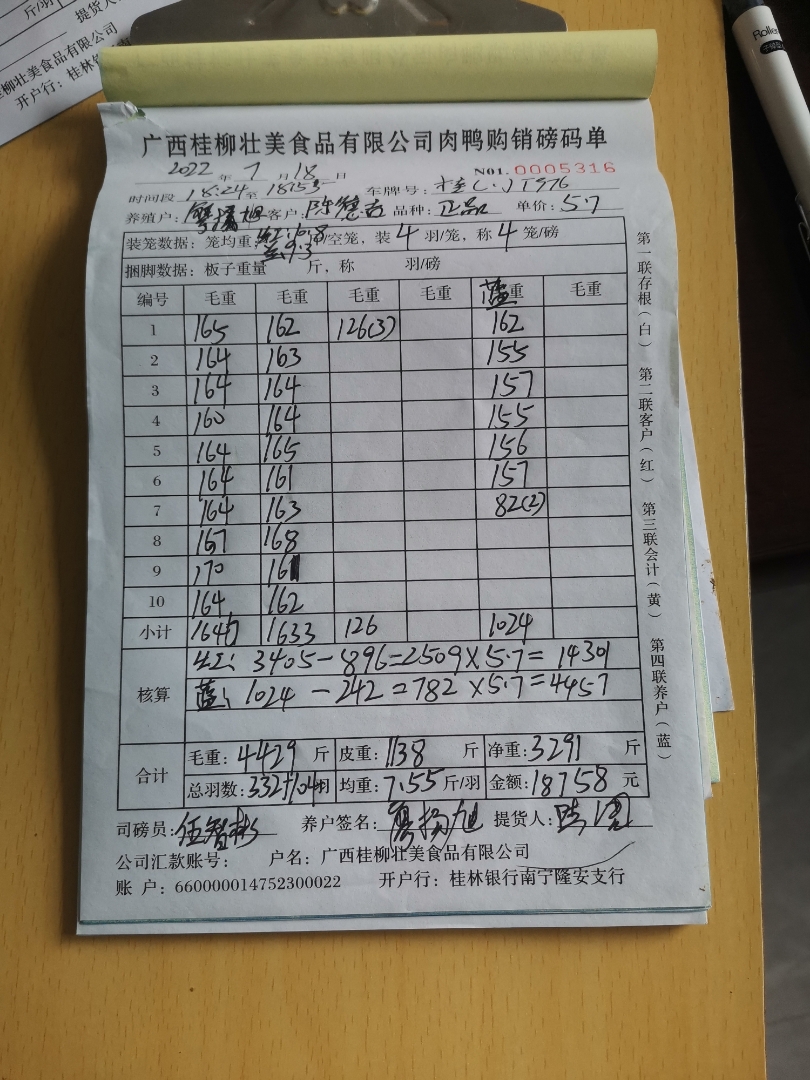 斤/羽
提货人
柳壮美食品有限公司
开户行：桂林
Roller
广西桂柳壮美食品有限公司肉鸭购销磅码单
2022 年 7 月 18 日 N01. 0005316
时间段 18:24 至 18:53 车牌号：
养殖户： 客户： 品种：正品 单价：5.7
装笼数据：笼均重： /空笼，装 4 羽/笼，称 4 笼/磅
捆脚数据：板子重量 斤，称 羽/磅
编号 毛重 毛重 毛重 毛重 蓝 重 毛重
1 165 162 126(3) 162
2 164 163 155
3 164 164 157
4 160 164 155
5 164 165 156
6 164 161 157
7 164 163 82(2)
8 167 168
9 170 161
10 164 162
小计 1646 1633 126 1024
核算
红: 3405-896=2509×5.7=14301
蓝: 1024-242=782×5.7=4457
合计
毛重: 4429 斤 皮重: 1138 斤 净重: 3291 斤
总羽数: 332+104羽 均重: 7.55 斤/羽 金额: 18758 元
司磅员: 伍智彬 养户签名: 提货人:
公司汇款账号： 户名：广西桂柳壮美食品有限公司
账 户：660000014752300022 开户行：桂林银行南宁隆安支行
第一联存根（白） 第二联客户（红） 第三联会计（黄） 第四联养户（蓝）